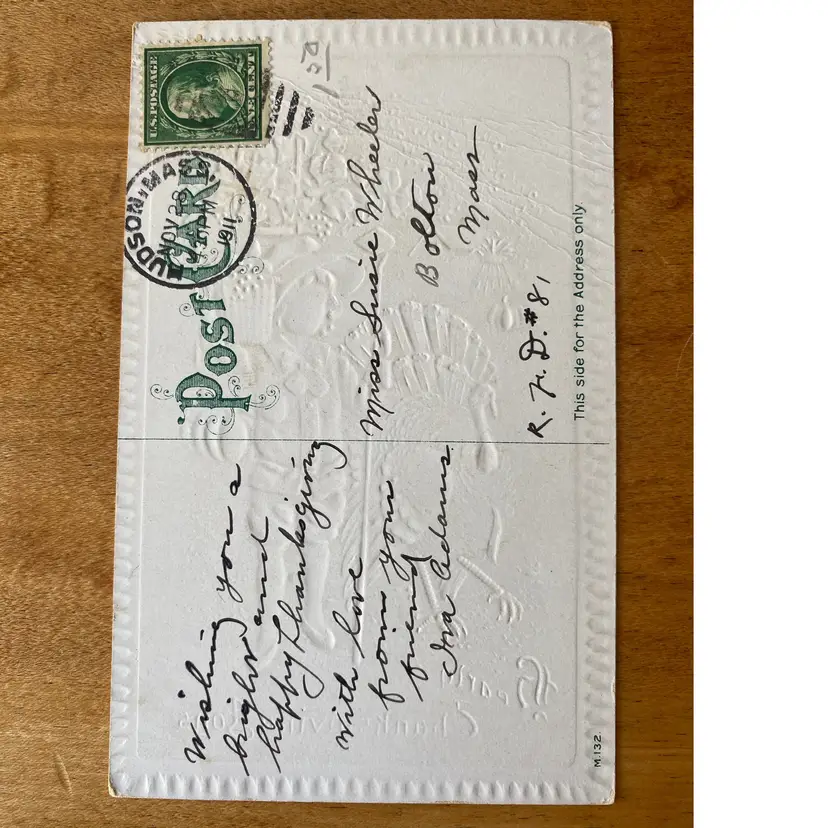 POST CARD
U.S. POSTAGE
ONE CENT
HUDSON, MASS.
NOV 28
PM
1911
1 50
Wishing
you a
bright and
happy Thanksgiving
With love
from your
friend
Iva Adams.
Miss Susie Wheeler
Bolton
Mass
R. F. D. #81
This side for the Address only.
M.132.